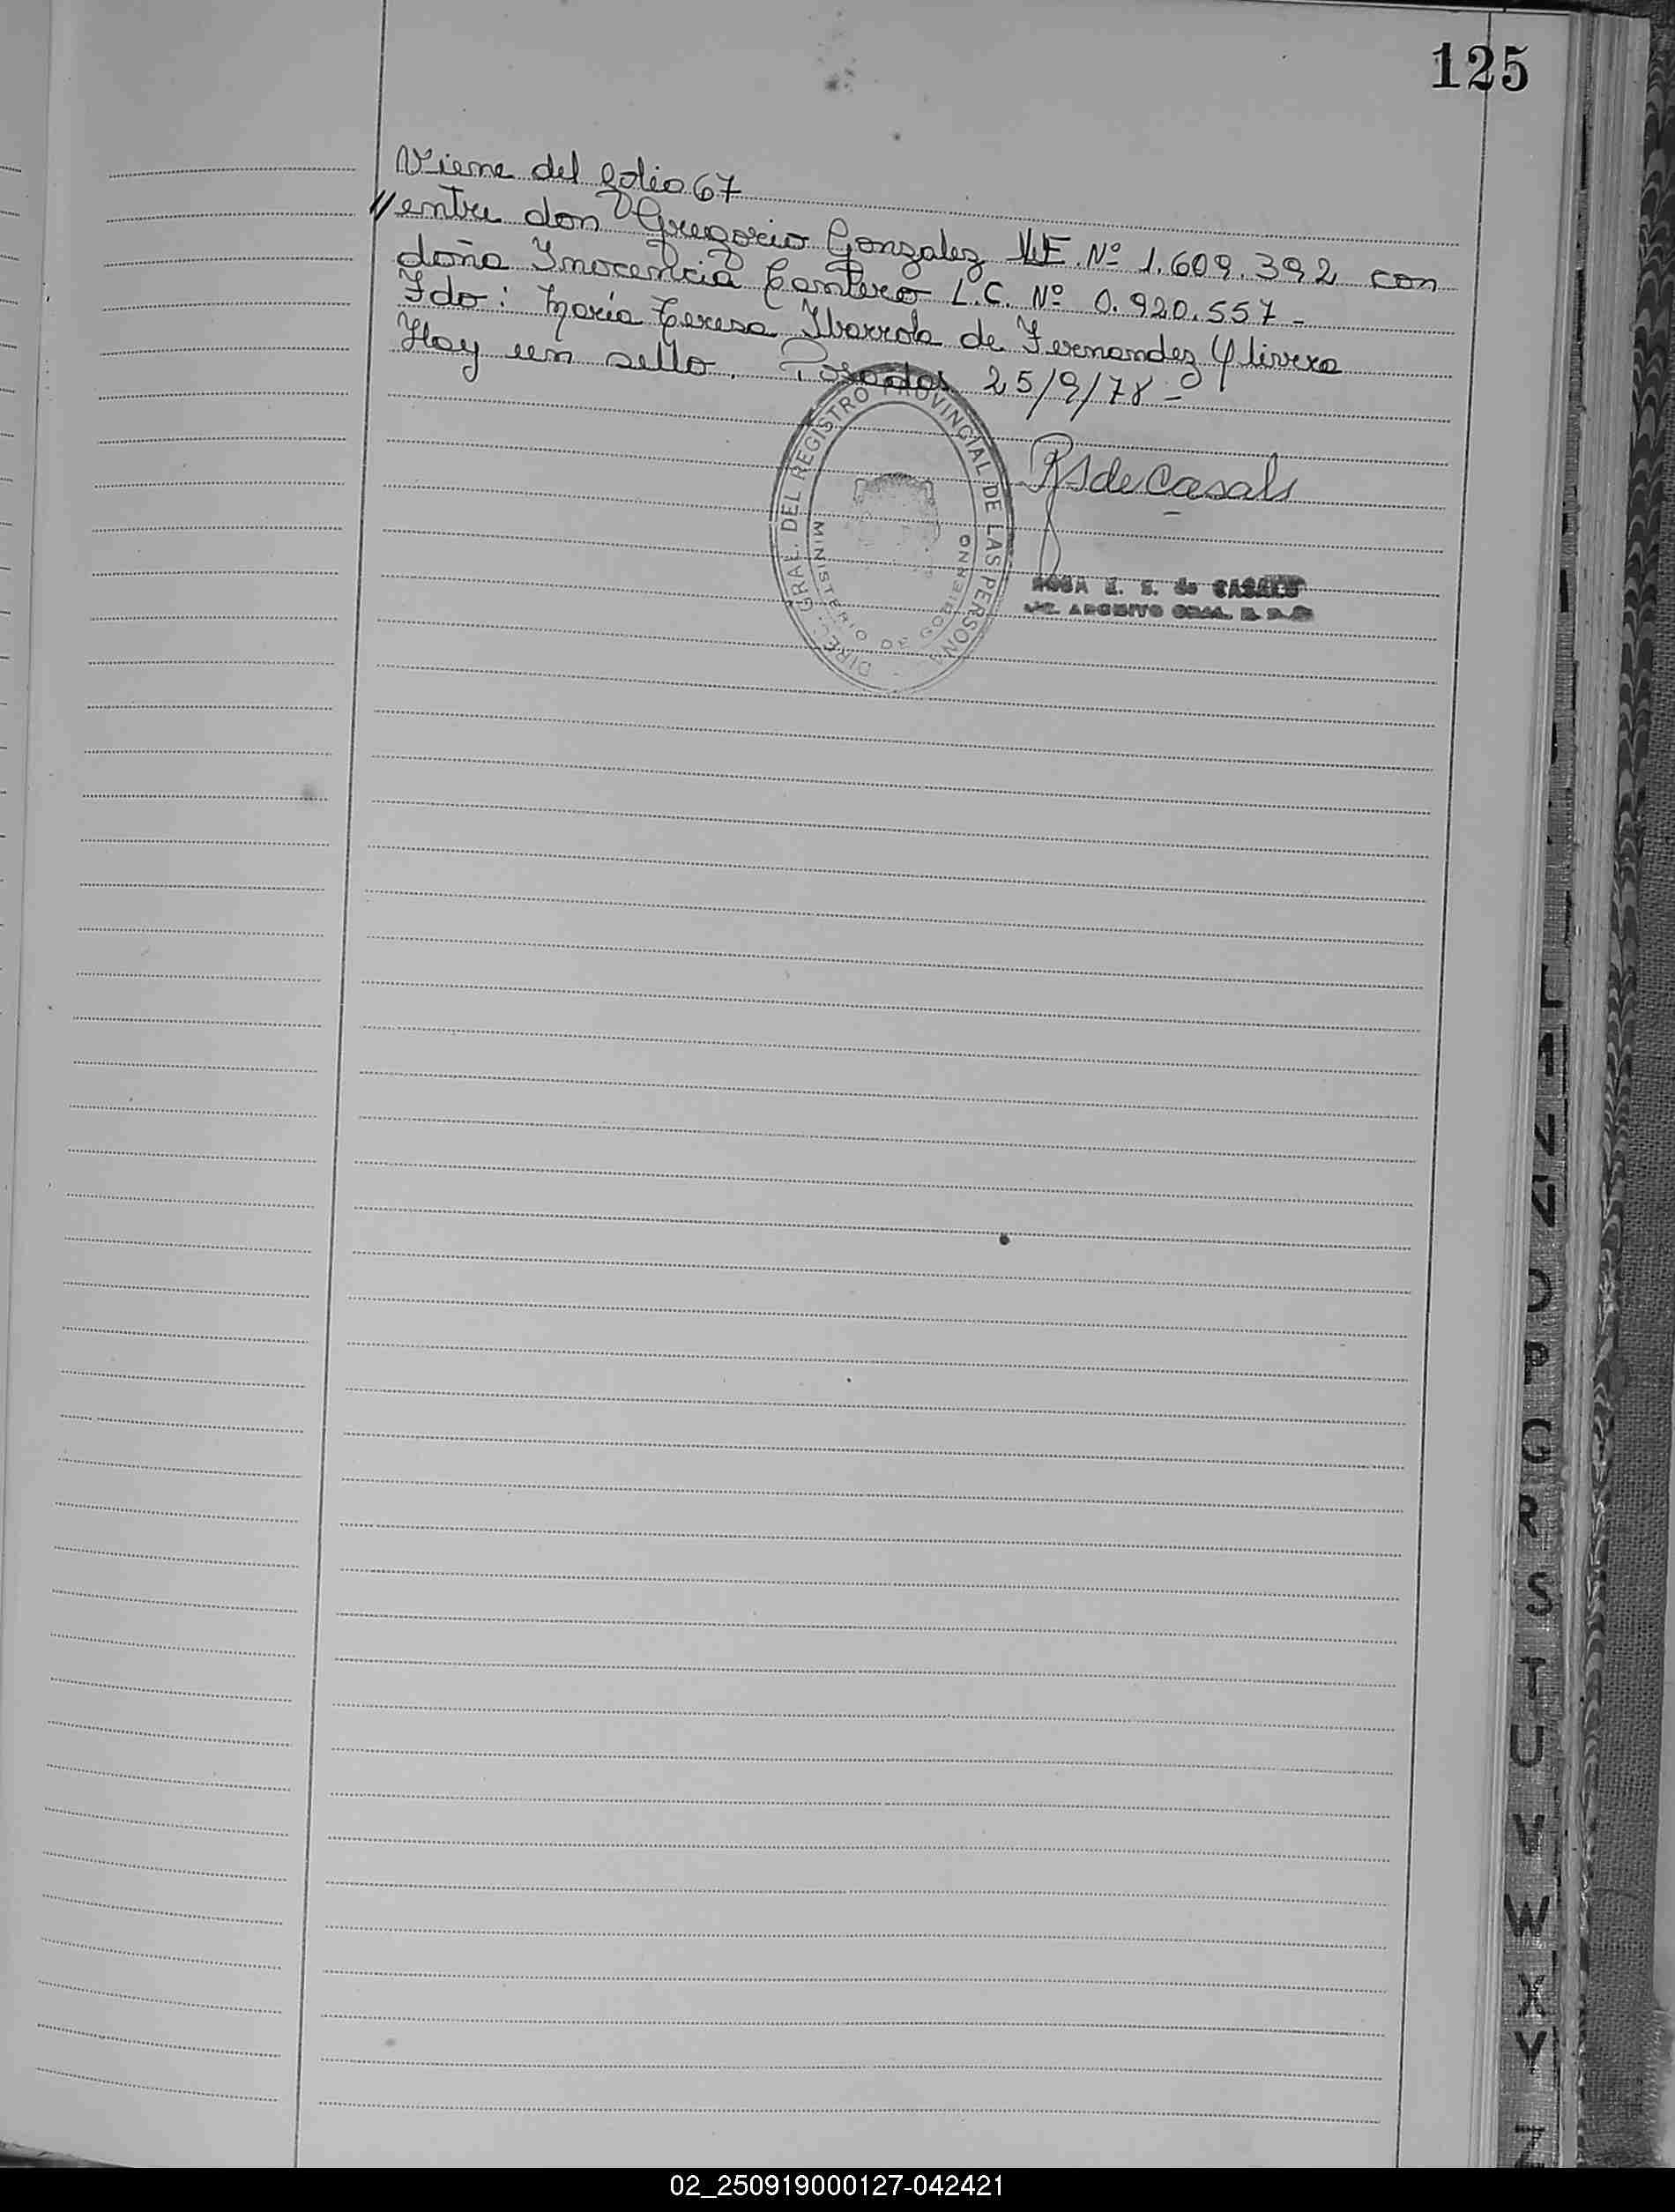 125
Viene del folio 67
// entre don Gregorio Gonzalez M.E. Nº 1.609.392 con
doña Inocencia Cantero L.C. Nº 0.920.557 -
Fdo: María Teresa Ibarrola de Fernandez Olivera
Hay un sello. Posadas 25/9/78 -
DIREC. GRAL. DEL REGISTRO PROVINCIAL DE LAS PERSONA
MINISTERIO DE GOBIERNO
RS de Casals
ROSA E. S. de CASALS
ARCHIVO GRAL.
L
M
N
O
P
Q
R
S
T
U
V
W
X
Y
Z
02_250919000127-042421